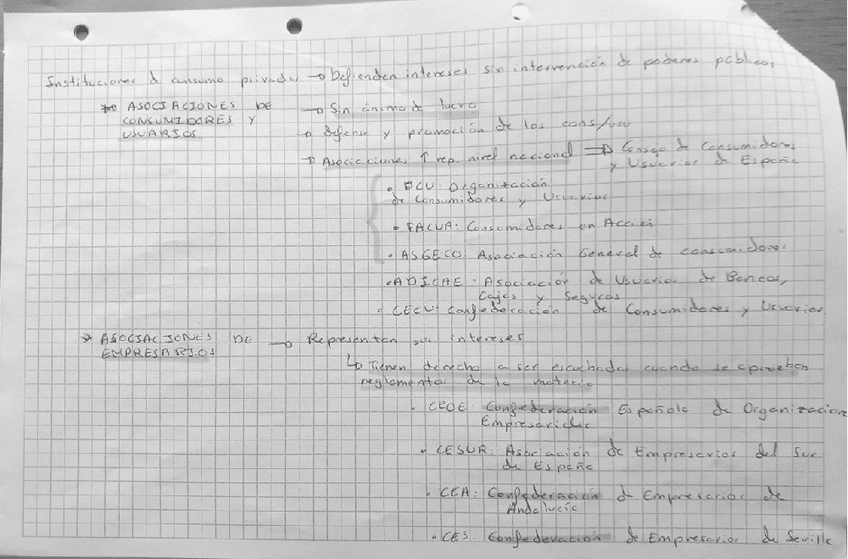 Instituciones d consumo privadas → Defienden intereses sin intervención de poderes públicos
→ ASOCIACIONES DE CONSUMIDORES Y USUARIOS
→ Sin ánimo de lucro
→ defensa y promoción de los cons/usu
→ Asociaciones ↑ rep. nivel nacional ⇒ Consejo de Consumidores y Usuarios de España
• OCU: Organización
de Consumidores y Usuarios
• FACUA: Consumidores en Acción
• ASGECO: Asociación General de consumidores
• ADICAE: Asociación de Usuarios de Bancos,
Cajas y Seguros
• CECU: Confederación de Consumidores y Usuarios
→ ASOCIACIONES DE EMPRESARIOS → Representan sus intereses
↳ Tienen derecho a ser escuchadas cuando se aprueban
reglamentos de la materia
• CEOE: Confederación Española de Organizaciones
Empresariales
• CESUR: Asociación de Empresarios del Sur
de España
• CEA: Confederación d Empresarios de
Andalucía
• CES Confederación de Empresarios de Sevilla